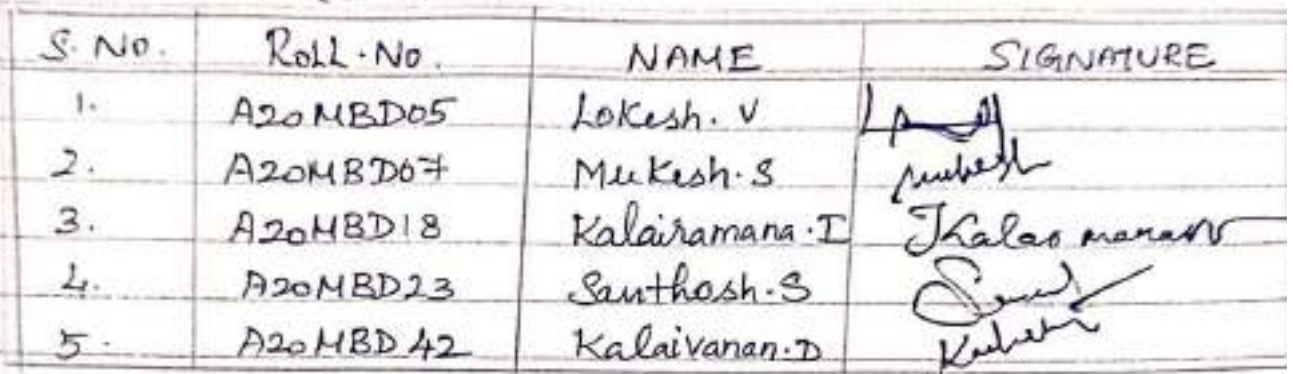 S. No. Roll. No. NAME SIGNATURE
1. A20MBD05 Lokesh. V
2. A20MBD07 Mukesh. S Mukesh
3. A20MBD18 Kalairamana. I
4. A20MBD23 Santhosh. S
5. A20MBD42 Kalaivanan. D